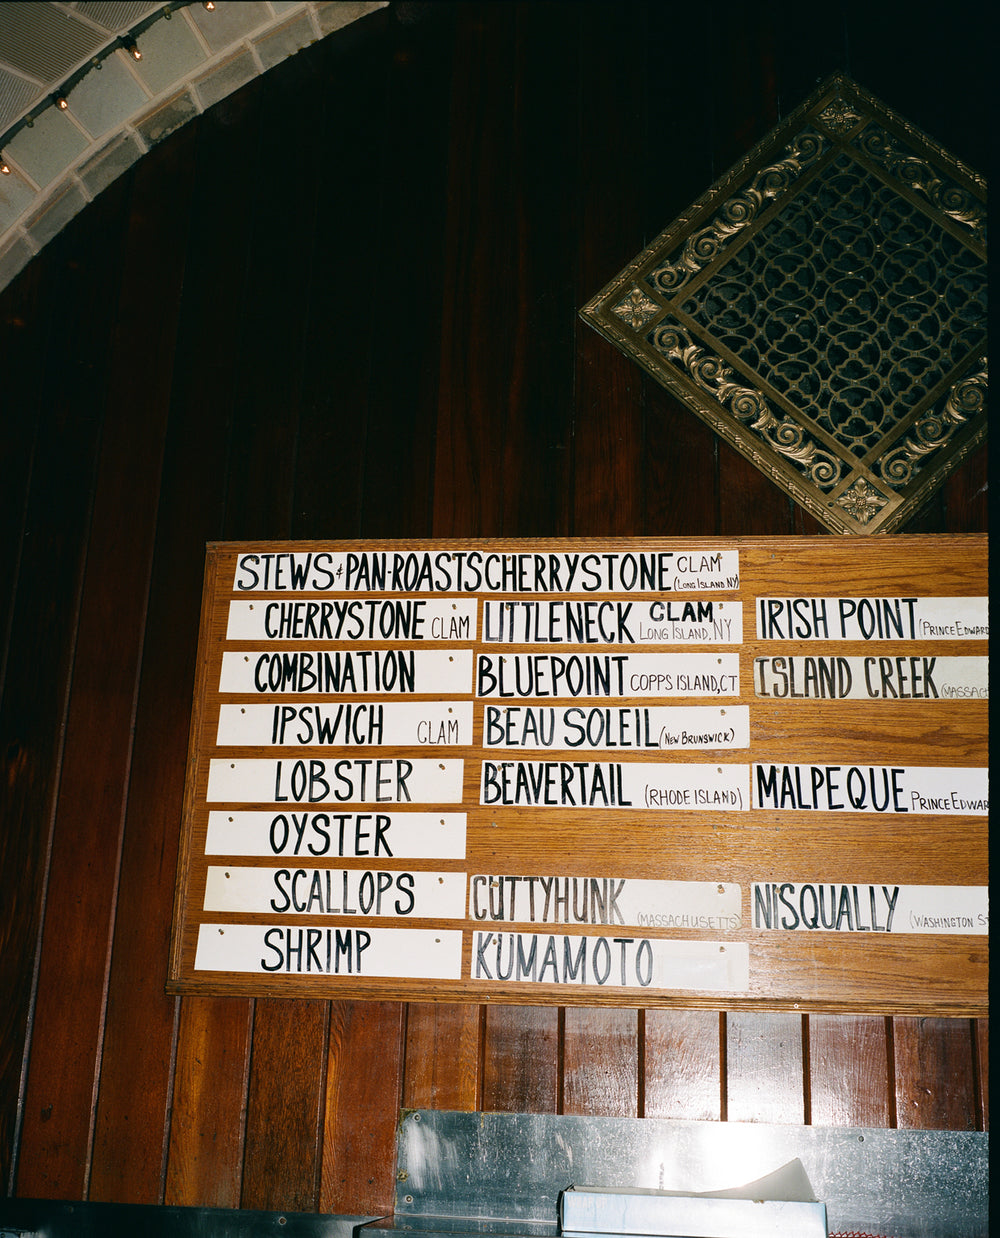 STEWS & PAN-ROASTS
CHERRYSTONE CLAM
COMBINATION
IPSWICH CLAM
LOBSTER
OYSTER
SCALLOPS
SHRIMP
CHERRYSTONE CLAM (LONG ISLAND, NY)
LITTLENECK CLAM LONG ISLAND, NY
BLUEPOINT COPPS ISLAND, CT
BEAU SOLEIL (NEW BRUNSWICK)
BEAVERTAIL (RHODE ISLAND)
CUTTYHUNK (MASSACHUSETTS)
KUMAMOTO
IRISH POINT (PRINCE EDWARD
ISLAND CREEK (MASSACH
MALPEQUE PRINCE EDWAR
NISQUALLY (WASHINGTON S